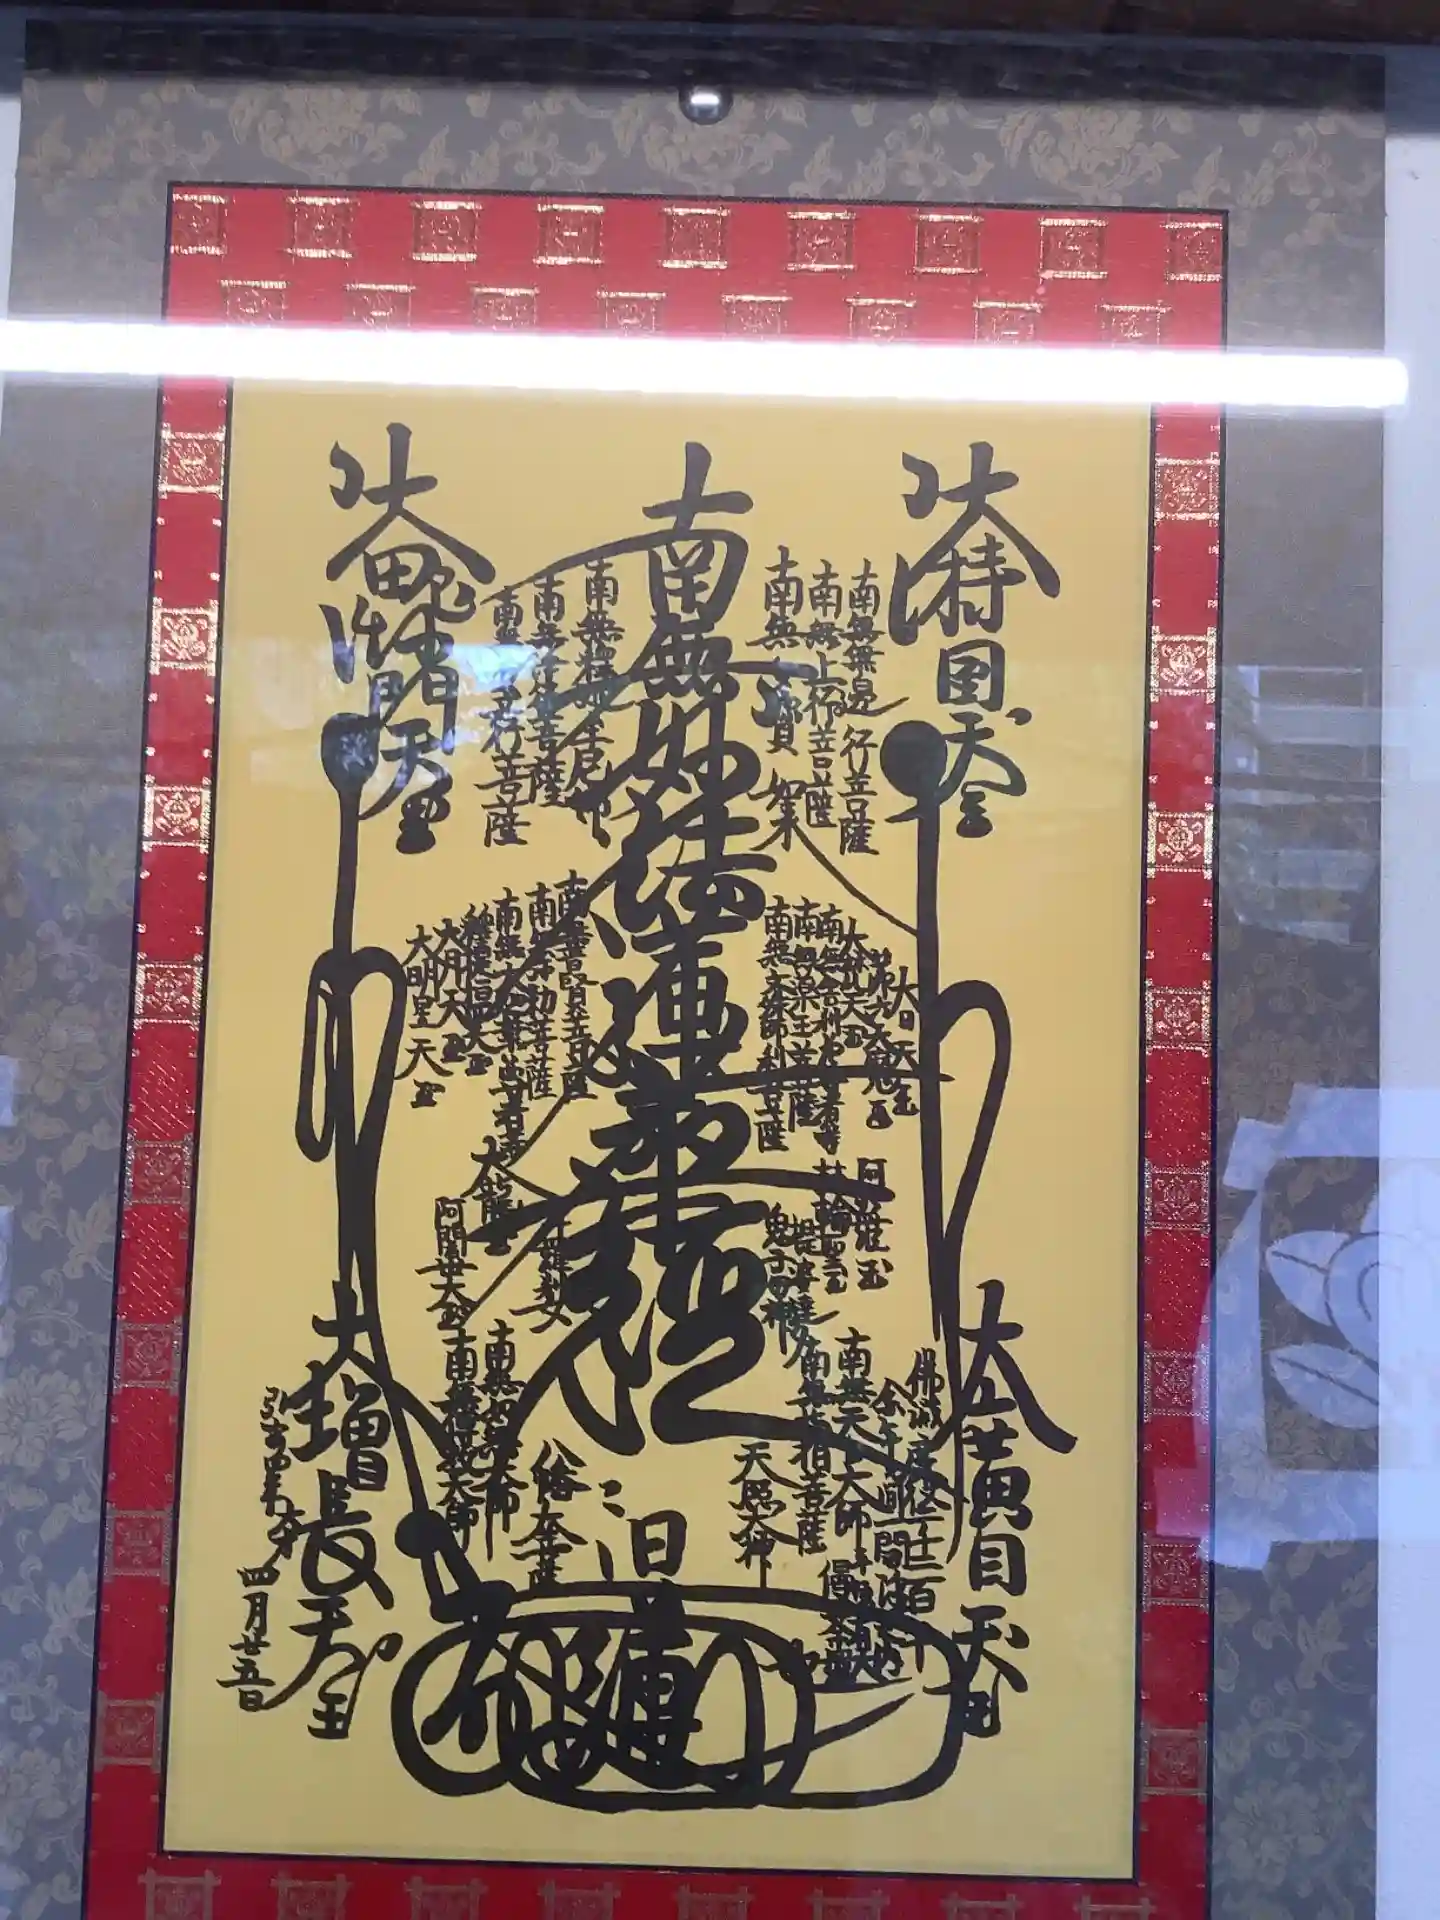 大持国天王
南無無辺行菩薩
南無上行菩薩
南無多宝如来
南無妙法蓮華経
南無釈迦牟尼仏
南無浄行菩薩
南無安立行菩薩
大毘沙門天王
大日天王
第六天魔王
大梵天王
南無舎利弗尊者等
南無薬王菩薩
南無文殊師利菩薩
南無普賢菩薩
南無弥勒菩薩
南無大迦葉尊者等
釈提桓因天王
大月天王
大明星天王
阿修羅王
転輪聖王
提婆達多
鬼子母神
十羅刹女
大龍王
阿闍世大王
大広目天王
南無天台大師
南無龍樹菩薩
天照大神
八幡大菩薩
南無妙楽大師
南無伝教大師
日蓮
大増長天王
弘安四年
四月廿五日